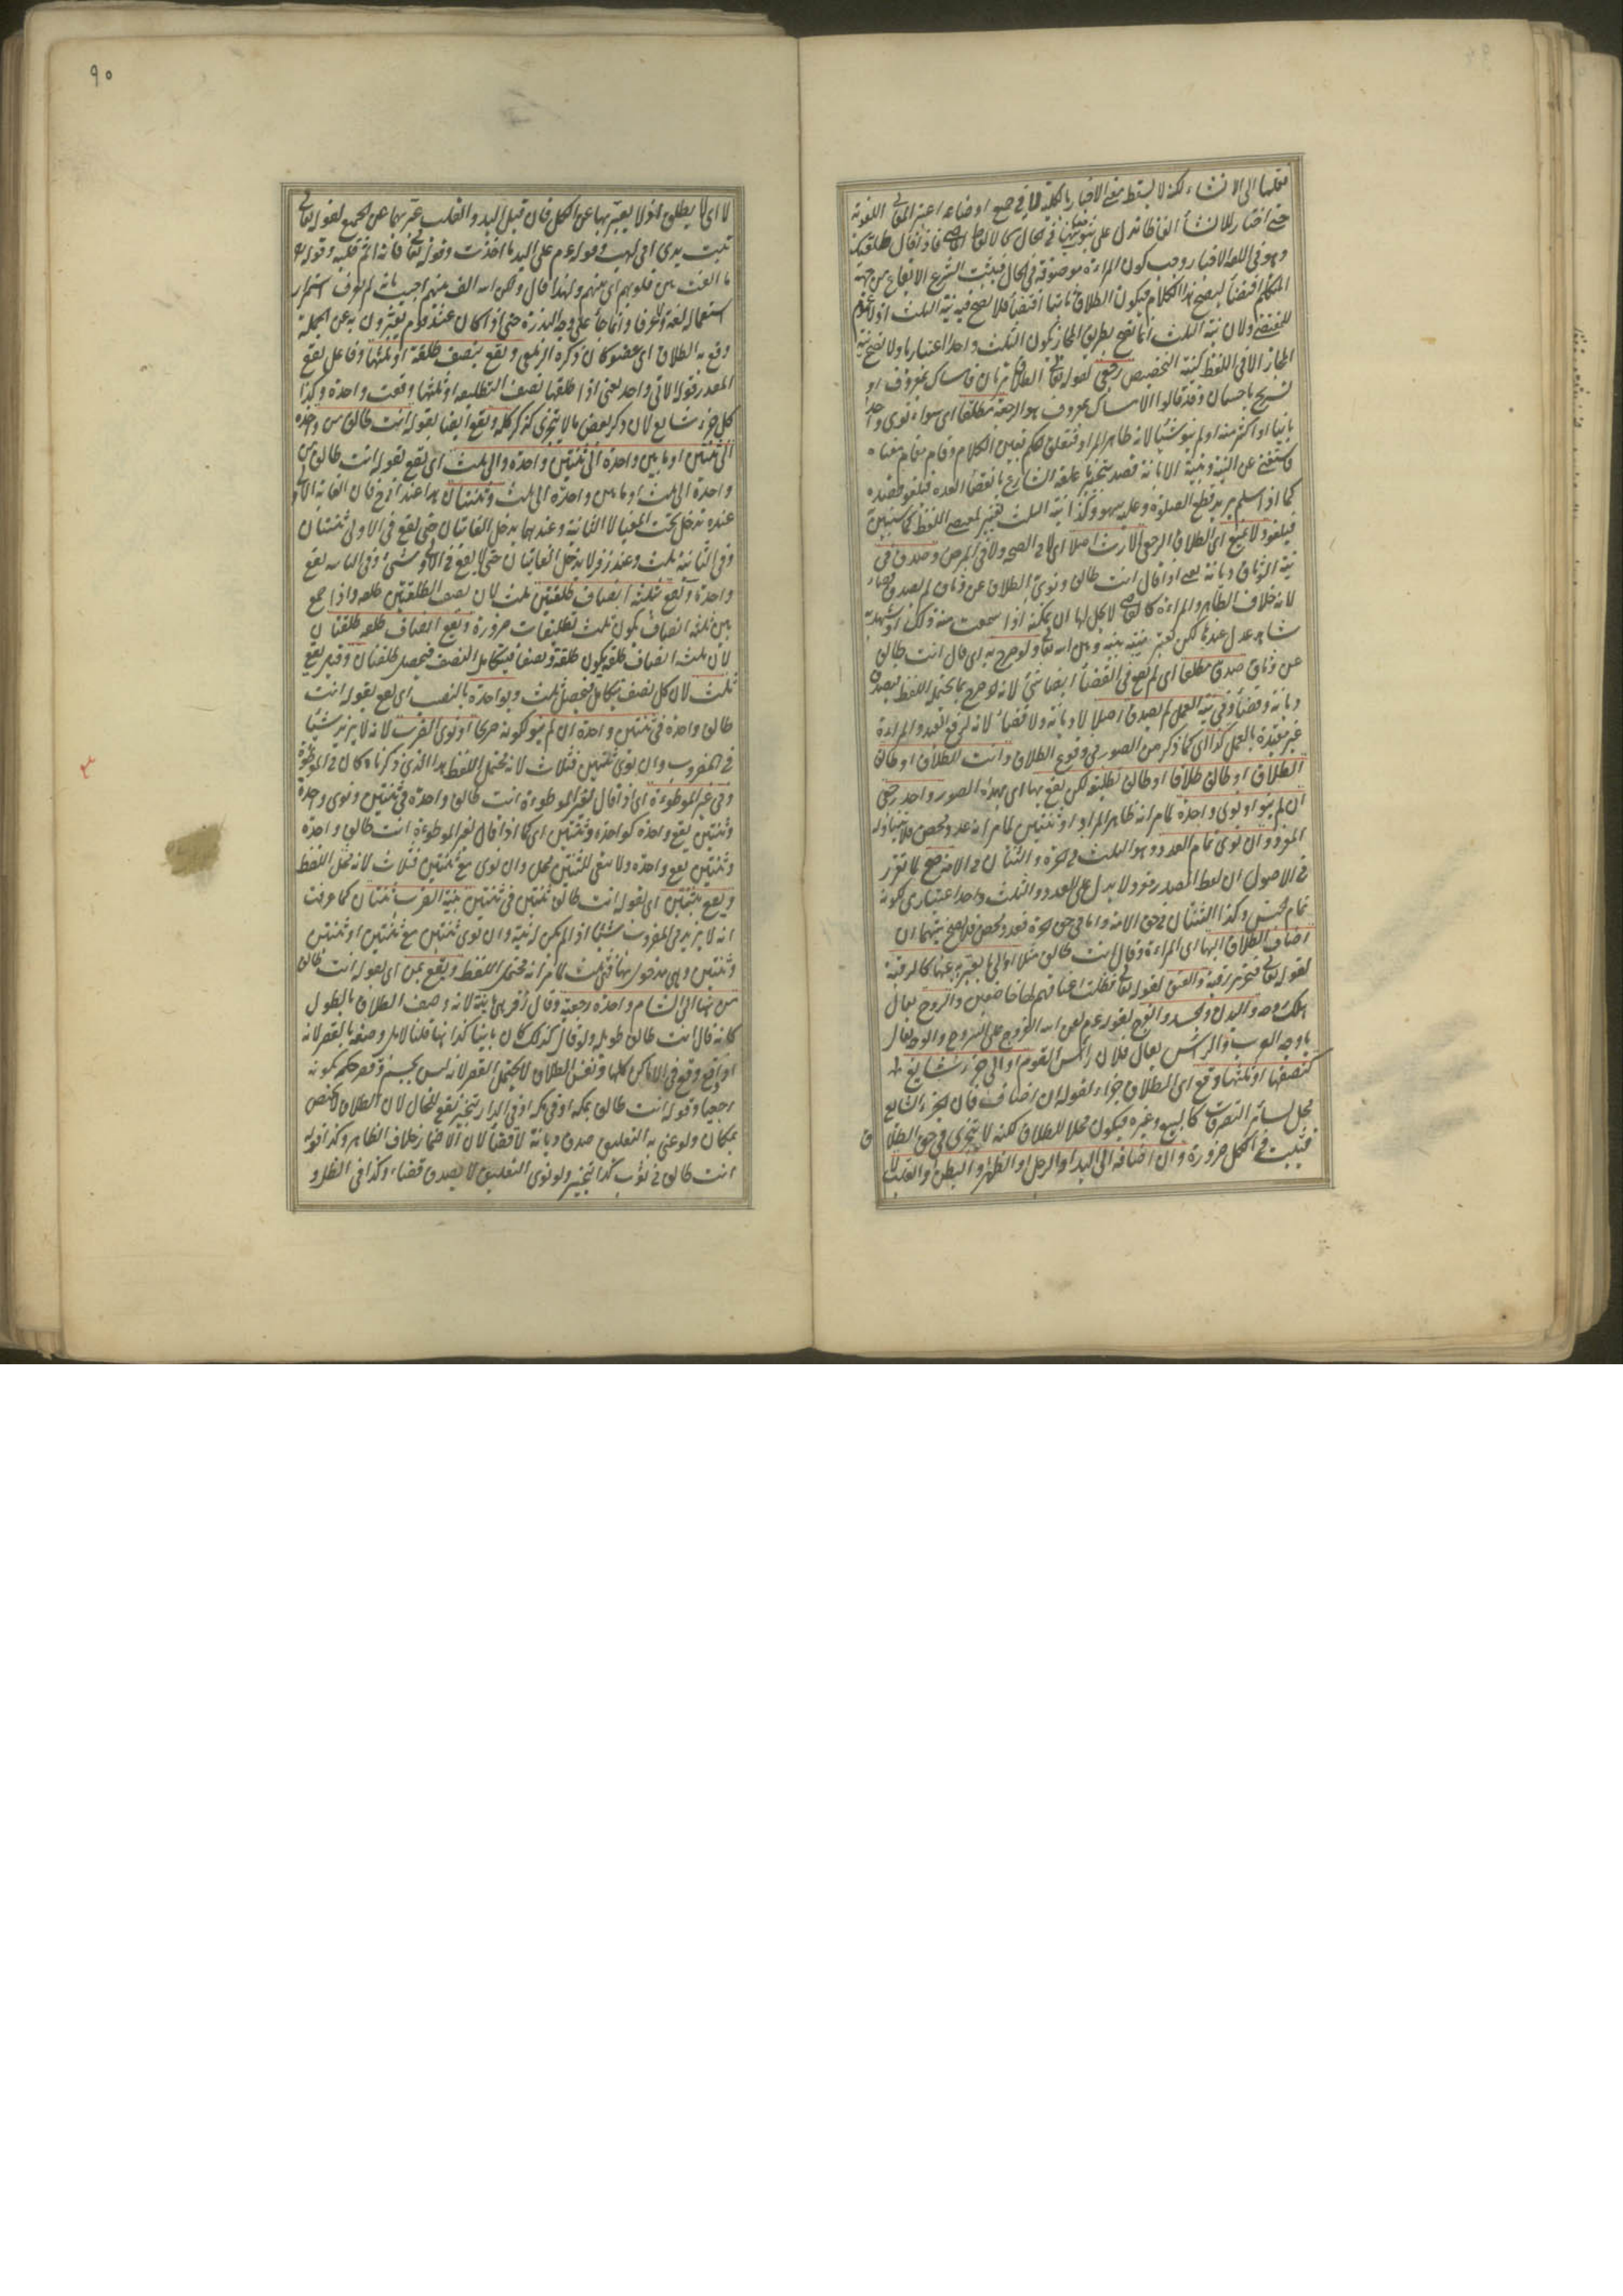 نقلها الى الانشاء لكنه لا يسقط معنى الاخبار بالكلية لانه في جميع اوضاعه اعتبر المعاني اللغوية
حتى اختار للانشاء الفاظا تدل على ثبوت معانيها في الحال كالفاظ الماضي فاذا قال طلقتك
وهو في اللغة الاخبار وجب كون المراءة موصوفة في الحال فيثبت الشرع الايقاع من جهة
المتكلم اقتضاء ليصح هذا الكلام فيكون الطلاق ثابتا اقتضاء فلا يصح فيه نية الثلث اذ لا عموم
للمقتضى ولان نية الثلث انما تصح بطريق المجاز بكون الثلث واحدا اعتباريا ولا تصح نية
المجاز الا في اللفظ كنية التخصيص رجعي لقوله تعالى الطلاق مرتان فامساك بمعروف او
تسريح باحسان وقد قالوا الامساك بمعروف هو الرجعة مطلقا اى سواء نوى واحدا
باينا او اكثر منه او لم ينو شيئا لانه ظاهر المراد فتعلق الحكم بعين الكلام وقام مقام معناه
فاستغنى عن النية وبنية الابانة قصد تنجيز ما علقه الشارع بانقضاء العدة فيلغو قصده
كما اذا سلم يريد قطع الصلوة وعليه سهو وكذا نية الثلث تغيير لمقتضى اللفظ كما سنبين
فيلغو ولا يمنع اى الطلاق الرجعي الارث اصلا اى لا في الصحة ولا في المرض وصدق في
نية الوثاق ديانة يعني اذا قال انت طالق ونوى الطلاق عن وثاق لم يصدق قضاء
لانه خلاف الظاهر والمراءة كالقاضي لا يحل لها ان تمكنه اذا سمعت منه ذلك او شهد به
شاهد عدل عندها لكن يعتبر نيته بينه وبين الله تعالى ولو صرح به اى قال انت طالق
عن وثاق صدق مطلقا اى لم يقع في القضاء ايضا شئ لانه لو صرح بما يحتمله اللفظ فيصدق
ديانة وقضاء وفي نية العمل لم يصدق اصلا لا ديانة ولا قضاء لانه لرفع القيد والمراءة
غير مقيدة بالعمل كذا اى كما ذكر من الصور في وقوع الطلاق وانت الطلاق او طالق
الطلاق او طالق طلاقا او طالق تطليقة لكن يقع بها اى بهذه الصور واحد رجعي
ان لم ينو او نوى واحدة لما مر انه ظاهر المراد او ثنتين لما مر انه عدد محض فلا يتناوله
المفرد وان نوى تمام العدد وهو الثلث في الحرة والثنتان في الامة صح لما تقرر
في الاصول ان لفظ المصدر مفرد لا يدل على العدد والثلث واحد اعتباري لكونه
تمام الجنس وكذا الثنتان في حق الامة واما في حق الحرة فعدد محض فلا يصح نيتهما ان
اضاف الطلاق اليها اى المراءة وقال انت طالق مثلا او الى ما يعبر به عنها كالرقبة
لقوله تعالى فتحرير رقبة والعنق لقوله تعالى فظلت اعناقهم لها خاضعين والروح يقال
هلك روحه والبدن والجسد والفرج لقوله عم لعن الله الفروج على السروج والوجه يقال
يا وجه العرب والرأس يقال فلان رأس القوم او الى جزء شايع
كنصفها او ثلثها وقع اى الطلاق جزاء لقوله ان اضاف فان الجزء الشايع
محل لسائر التصرفات كالبيع وغيره فيكون محلا للطلاق لكنه لا يتجزى في حق الطلاق
فيثبت في الكل ضرورة وان اضافه الى اليد او الرجل او الظهر او البطن او القلب
٩٠
لا اى لا يطلق اذ لا يعبر بها عن الكل فان قيل اليد والقلب عبر بهما عن الجميع لقوله تعالى
تبت يدى ابي لهب وقوله عم على اليد ما اخذت وقوله تعالى فانه اثم قلبه وقوله تعالى
ما الفت بين قلوبهم اى بينهم ولهذا قال ولكن الله الف بينهم اجيب بانه لم يعرف استمرار
استعماله لغة ولا عرفا وانما جاء على وجه الندرة حتى اذا كان عند قوم يعبرون به عن الجملة
وقع به الطلاق اى عضو كان ذكره الزيلعي ويقع بنصف طلقة او ثلثها وفاعل يقع
المقدر قوله الاتي واحد يعني اذا طلقها نصف التطليقة او ثلثها وقعت واحدة وكذا
كل جزء شايع لان ذكر بعض ما لا يتجزى كذكر كله ويقع ايضا بقوله انت طالق من واحدة
الى ثنتين او ما بين واحدة الى ثنتين واحدة والى ثلث اى يقع بقوله انت طالق من
واحدة الى ثلث او ما بين واحدة الى ثلث وثنتان هذا عند ابي ح فان الغاية الاولى
عنده تدخل تحت المغيا لا الثانية وعندهما يدخل الغايتان حتى يقع في الاولى ثنتان
وفي الثانية ثلث وعند زفر لا يدخل الغايتان حتى لا يقع في الاولى شئ وفي الثانية يقع
واحدة ويقع بثلثة انصاف طلقتين ثلث لان نصف الطلقتين طلقة واذا جمع
بين ثلثة انصاف يكون ثلث تطليقات ضرورة ويقع بثلثة انصاف طلقة طلقتان
لان ثلثة انصاف طلقة يكون طلقة ونصفا فيتكامل النصف فيحصل طلقتان وقيل يقع
ثلث لان كل نصف يتكامل فيحصل ثلث وبواحدة بالنصب اى يقع بقوله انت
طالق واحدة في ثنتين واحدة ان لم ينو لكونه صريحا او نوى الضرب لانه لا يزيد شيئا
في المضروب وان نوى ثنتين فثلاث لانه يحتمل اللفظ هذا الذى ذكرناه كان في الموطوءة
وفي غير الموطوءة اى اذا قال لغير الموطوءة انت طالق واحدة في ثنتين ونوى واحدة
وثنتين يقع واحدة كواحدة وثنتين اى كما اذا قال لغير الموطوءة انت طالق واحدة
وثنتين يقع واحدة ولا يبقى للثنتين محل وان نوى مع ثنتين فثلاث لانه محتمل اللفظ
ويقع بثنتين اى بقوله انت طالق ثنتين في ثنتين بنية الضرب ثنتان كما عرفت
انه لا يزيد في المضروب شيئا اذا لم يكن له نية وان نوى ثنتين مع ثنتين او ثنتين
وثنتين وهي مدخول بها فثلث لما مر انه محتمل اللفظ ويقع بمن اى بقوله انت طالق
من هنا الى الشام واحدة رجعية وقال زفر هي باينة لانه وصف الطلاق بالطول
كانه قال انت طالق طويلة ولو قال كذلك كان باينا كذا هنا قلنا لا بل وصفه بالقصر لانه
اذا وقع وقع في الاماكن كلها ونفس الطلاق لا يحتمل القصر لانه ليس بجسم وقصر حكمه بكونه
رجعيا وقوله انت طالق بمكة او في مكة او في الدار تنجيز يقع للحال لان الطلاق لا يختص
بمكان ولو عني به التعليق صدق ديانة لا قضاء لان الاضمار خلاف الظاهر وكذا قوله
انت طالق في ثوب كذا تنجيز ولو نوى التعليق لا يصدق قضاء وكذا في الظل و